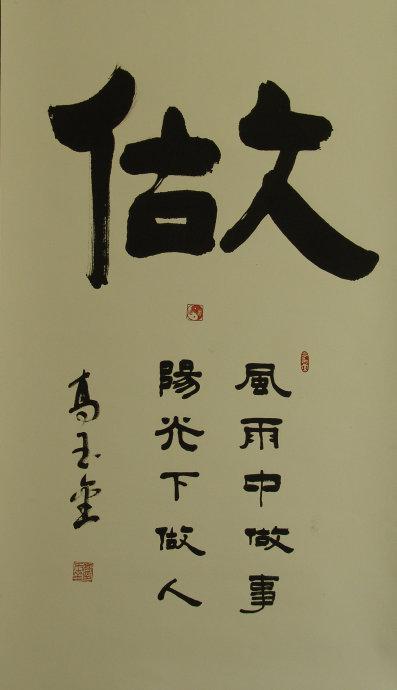 做
風雨中做事
陽光下做人
高玉奎